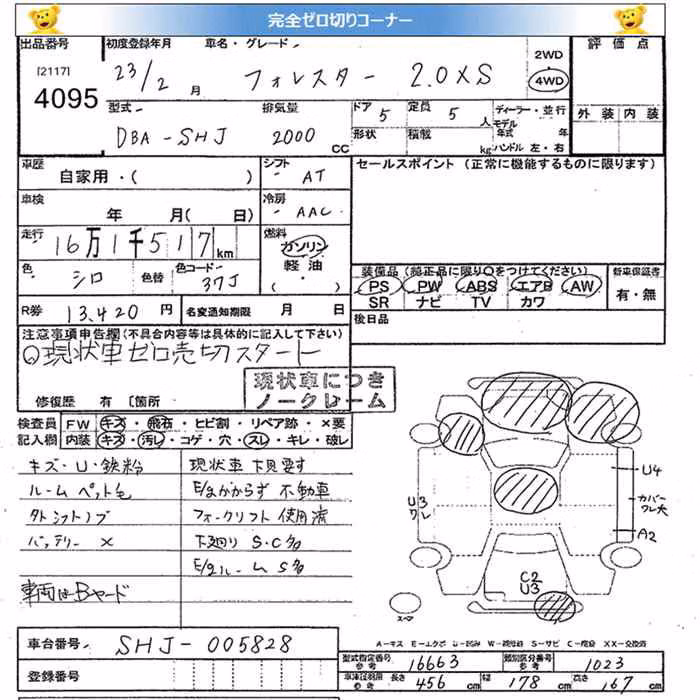 完全ゼロ切りコーナー
出品番号 初度登録年月 車名・グレード 2WD 4WD 評価点
[2117] 4095 23/2 月 フォレスター 2.0XS
型式 排気量 ドア 5 定員 5 人 ディーラー・並行 外装 内装
DBA-SHJ 2000 CC 形状 積載 kg モデル年式 年 ハンドル 左・右
車歴 シフト セールスポイント (正常に機能するものに限ります)
自家用・( ) AT
車検 年 月( 日) 冷房 AAC
走行 16万1千517km 燃料 ガソリン 軽油
色 シロ 色替 色コード 37J ・( )
装備品(純正品に限り○をつけてください) 新車保証書
PS PW ABS エアB AW 有・無
SR ナビ TV カワ
R券 13.420円 名変通知期限 月 日 後日品
注意事項申告欄(不具合内容等は具体的に記入して下さい)
◎現状車ゼロ売切スタート
現状車につき
ノークレーム
修復歴 有 〔箇所
検査員 FW キズ・飛石・ヒビ割・リペア跡・×要
記入欄 内装 キズ・汚レ・コゲ・穴・スレ・キレ・破レ
キズ・U・鉄粉 現状車 下見要す
ルームペット毛 E/gかからず 不動車
外シフトノブ フォークリフト使用済
バッテリー× 下廻り S・C多
E/gルームS多
車両はBヤード
U4
U3
ワレ
カバーワレ大
A2
C2
U3
スペア
車台番号 SHJ-005828
A-キズ E-エクボ U-凹み W-補修跡 S-サビ C-腐蝕 XX-交換済
型式指定番号 参考 16663 類別区分番号 参考 1023
登録番号 車庫証明用参考 長さ 456cm 幅 178cm 高さ 167cm